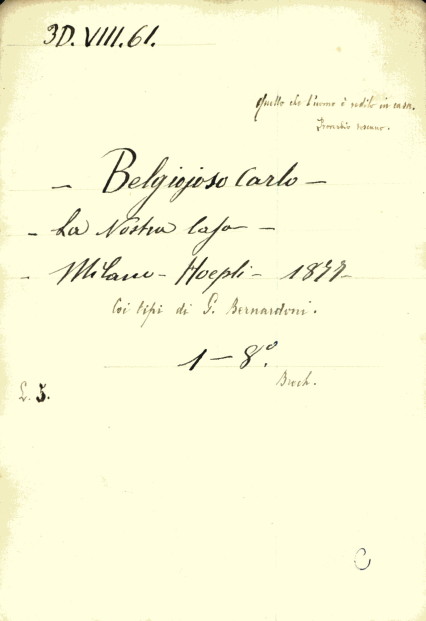 3D. VIII. 61.
Quello che l'uomo è vedilo in casa.
Proverbio toscano.
— Belgiojoso Carlo —
— La Nostra Casa —
— Milano — Hoepli — 1877
Coi tipi di G. Bernardoni.
1 — 8º.
Broch.
L. 5.
C